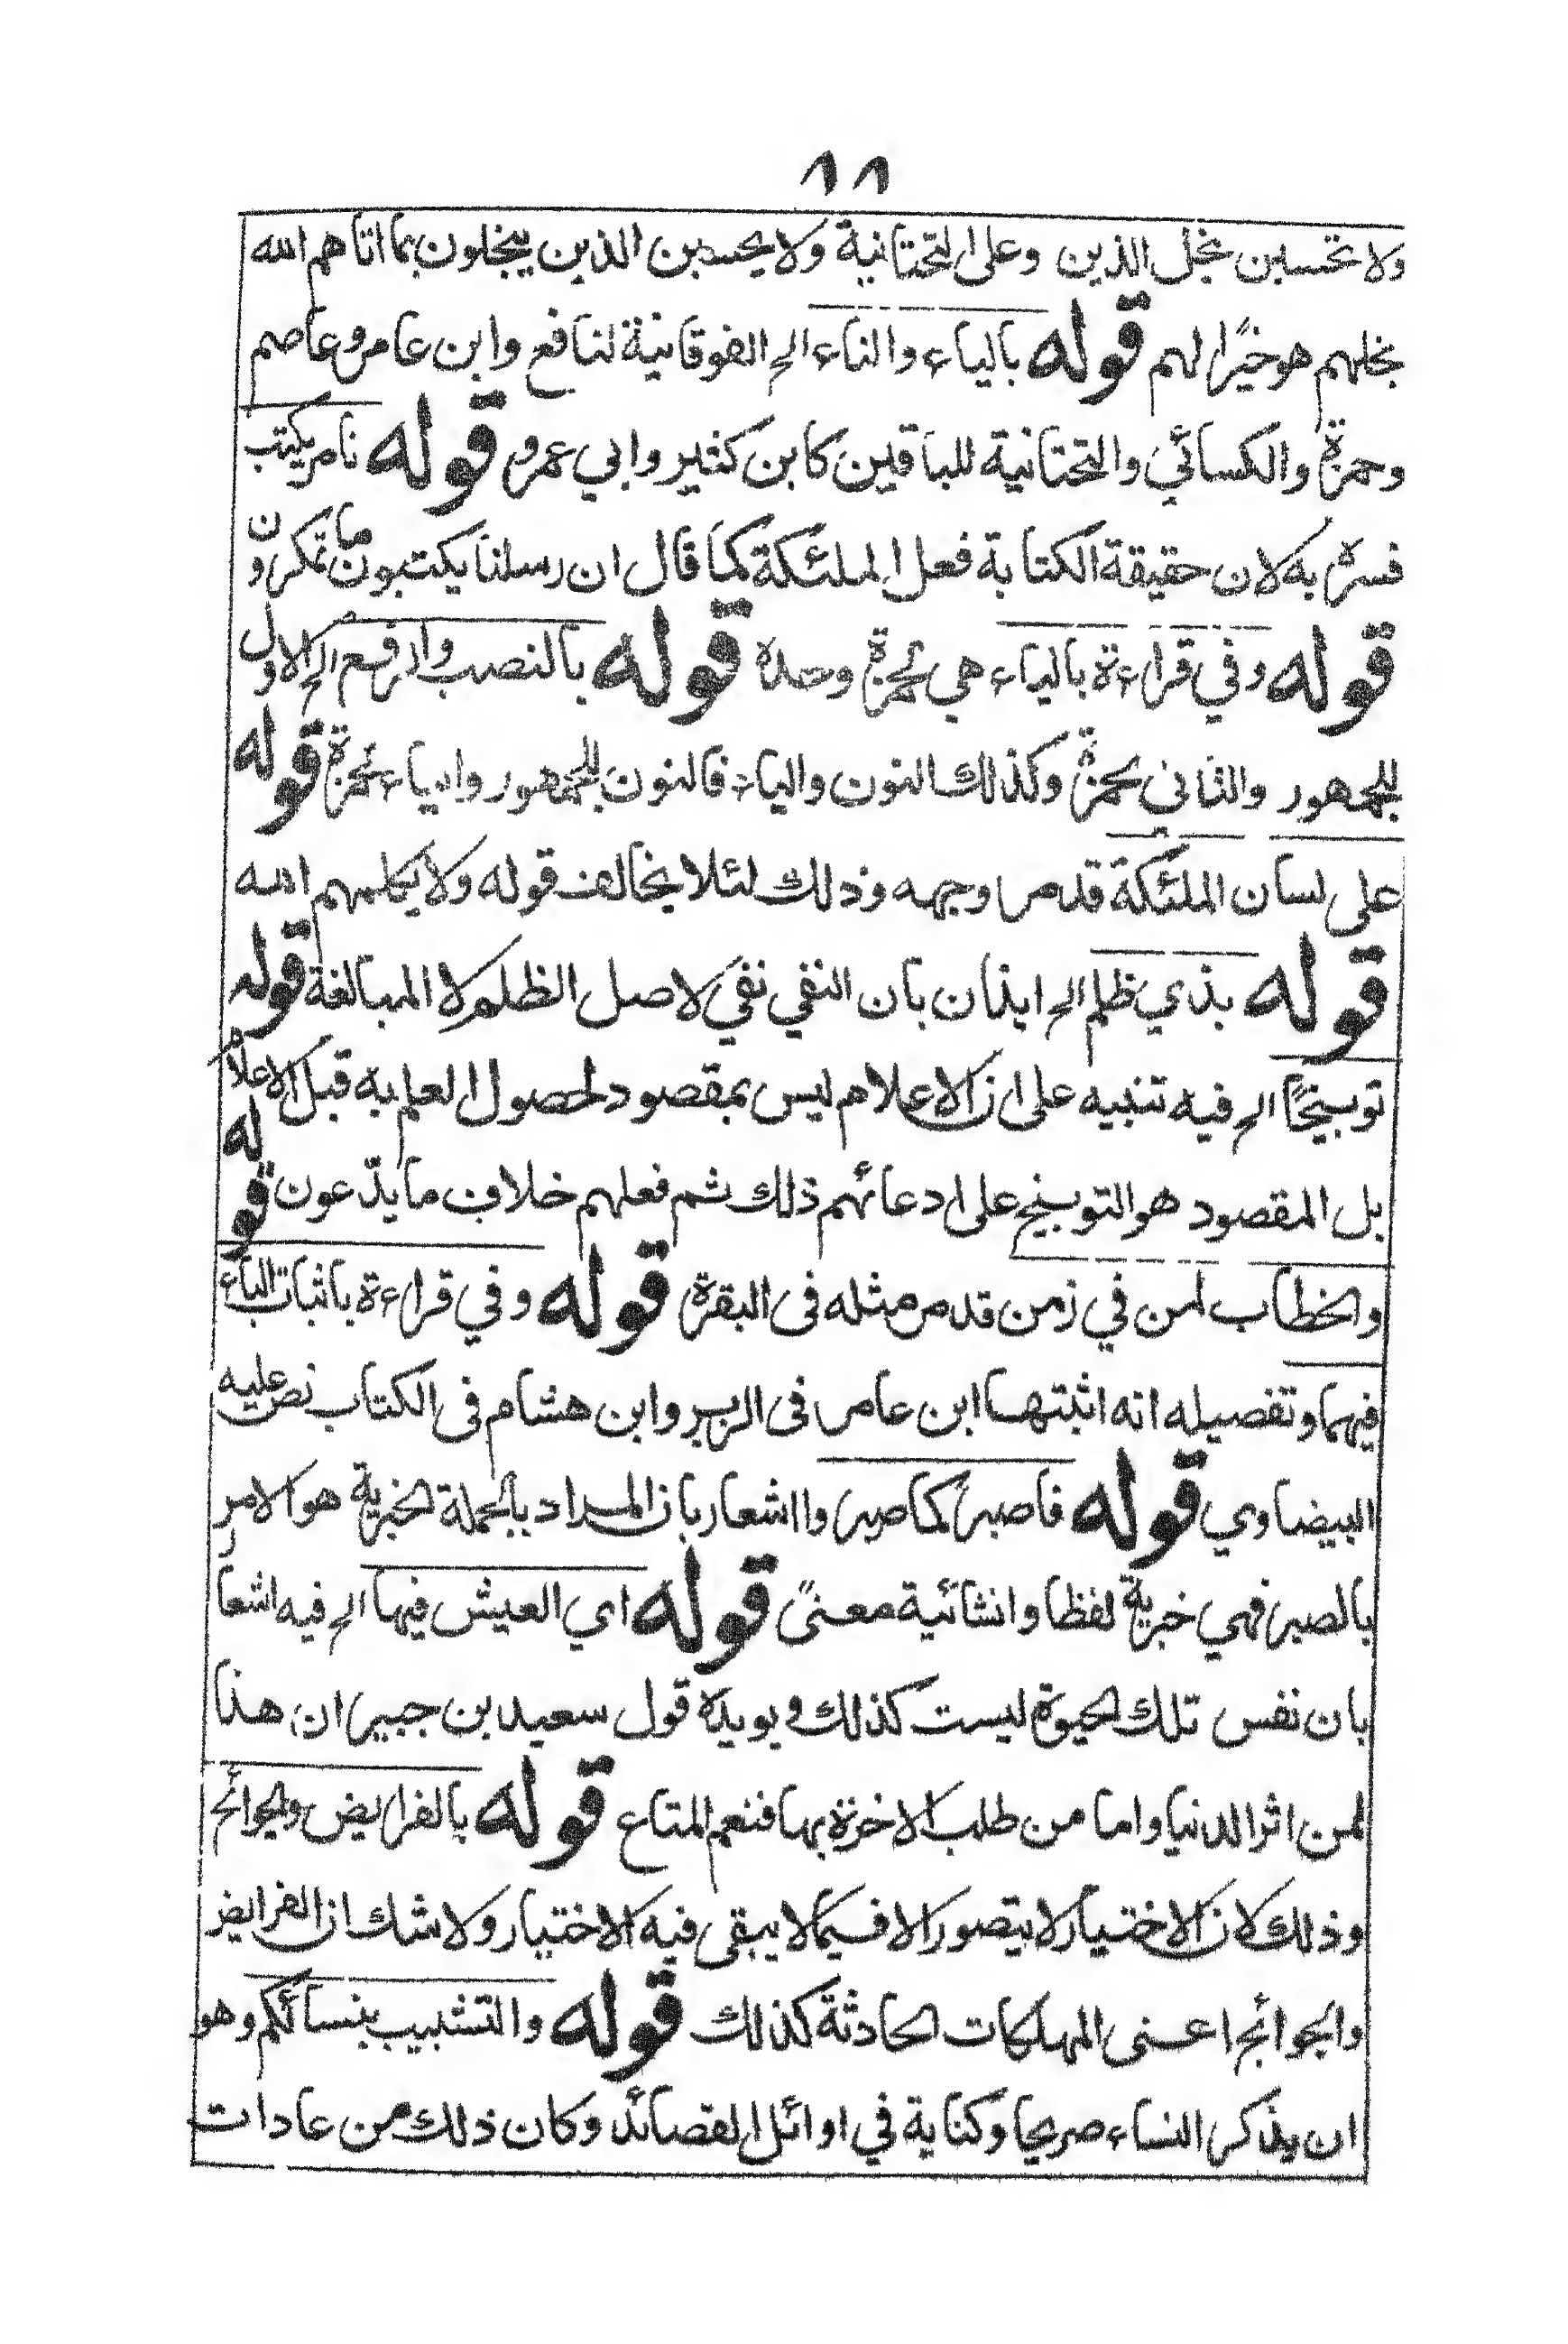 ٨٨
ولا تحسبن بخل الذين وعلى التحتانية ولا يحسبن الذين يبخلون بما اتاهم الله
بخلهم هو خيرًا لهم قوله بالياء والتاء الخ الفوقانية لنافع وابن عامر وعاصم
وحمزة والكسائي والتحتانية للباقين كابن كثير وابي عمرو قوله نامر بكتب
فسره به لان حقيقة الكتابة فعل الملئكة كما قال ان رسلنا يكتبون ما تمكرون
قوله وفي قراءة بالياء هي لحمزة وحده قوله بالنصب والرفع الخ الاول
للجمهور والثاني لحمزة وكذلك النون والياء فالنون للجمهور والياء لحمزة قوله
على لسان الملئكة قد مر وجهه وذلك لئلا يخالف قوله ولا يكلمهم الله
قوله بذي ظلم الخ ايذان بان النفي نفي لاصل الظلم لا المبالغة قوله
توبيخًا الخ فيه تنبيه على ان الاعلام ليس بمقصود لحصول العلم به قبل الاعلام
بل المقصود هو التوبيخ على ادعائهم ذلك ثم فعلهم خلاف ما يدّعون قوله
والخطاب لمن في زمن قد مر مثله فى البقرة قوله وفي قراءة باثبات الباء
فيهما وتفصيله انه اثبتها ابن عامر فى الزبر وابن هشام فى الكتاب نص عليه
البيضاوي قوله فاصبر كما صبروا اشعار بان المراد بالجملة الخبرية هو الامر
بالصبر فهي خبرية لفظا وانشائية معنىً قوله اي العيش فيها الخ فيه اشعار
بان نفس تلك الحيوة ليست كذلك ويويده قول سعيد بن جبير ان هذا
لمن اثر الدنيا واما من طلب الاخرة بها فنعم المتاع قوله بالفرايض والجوائح
وذلك لان الاختيار لا يتصور الا فيما لا يبقى فيه الاختيار ولا شك ان الفرايض
والجوائح اعنى المهلكات الحادثة كذلك قوله والتشبيب بنسائكم وهو
ان يذكر النساء صريحا وكناية في اوائل القصائد وكان ذلك من عادات